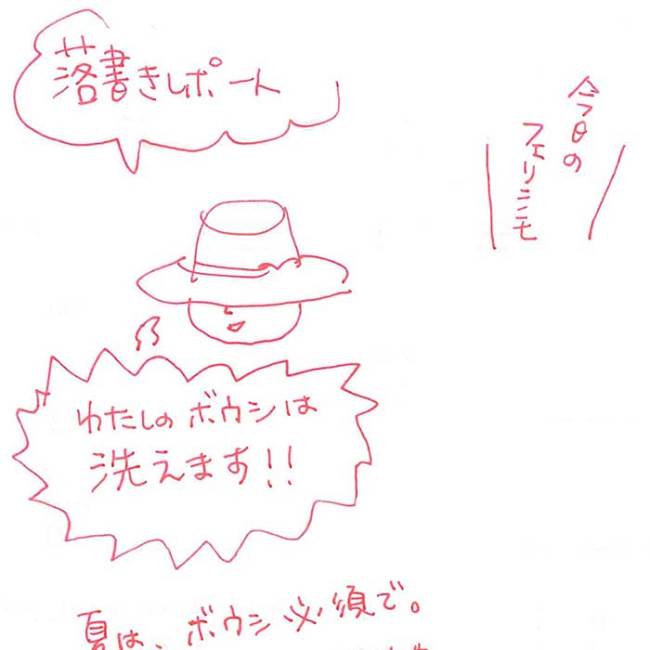 落書きレポート
今日の
フェリシモ
わたしのボウシは
洗えます!!
夏は、ボウシ必須で。